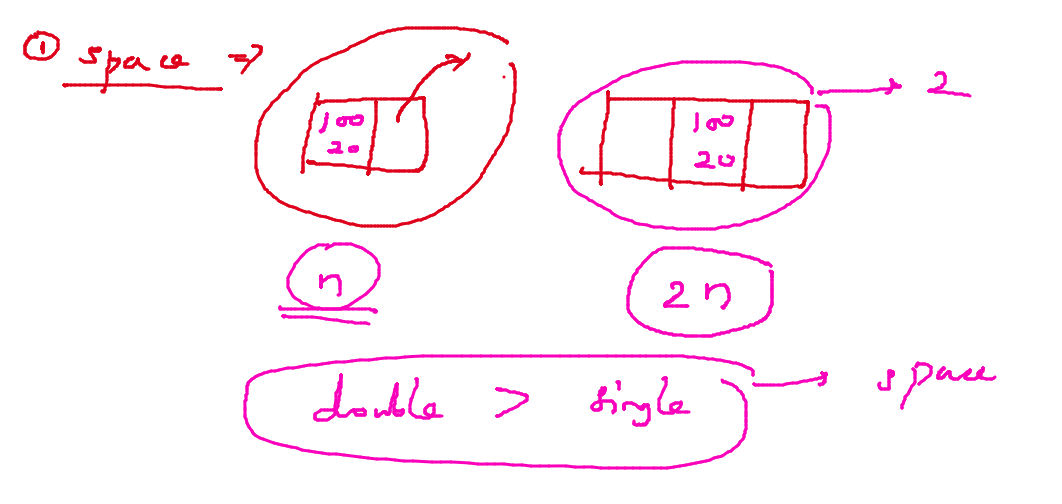 ① space ⇒
100 100 → 2
20 20
n 2n
double > single → space